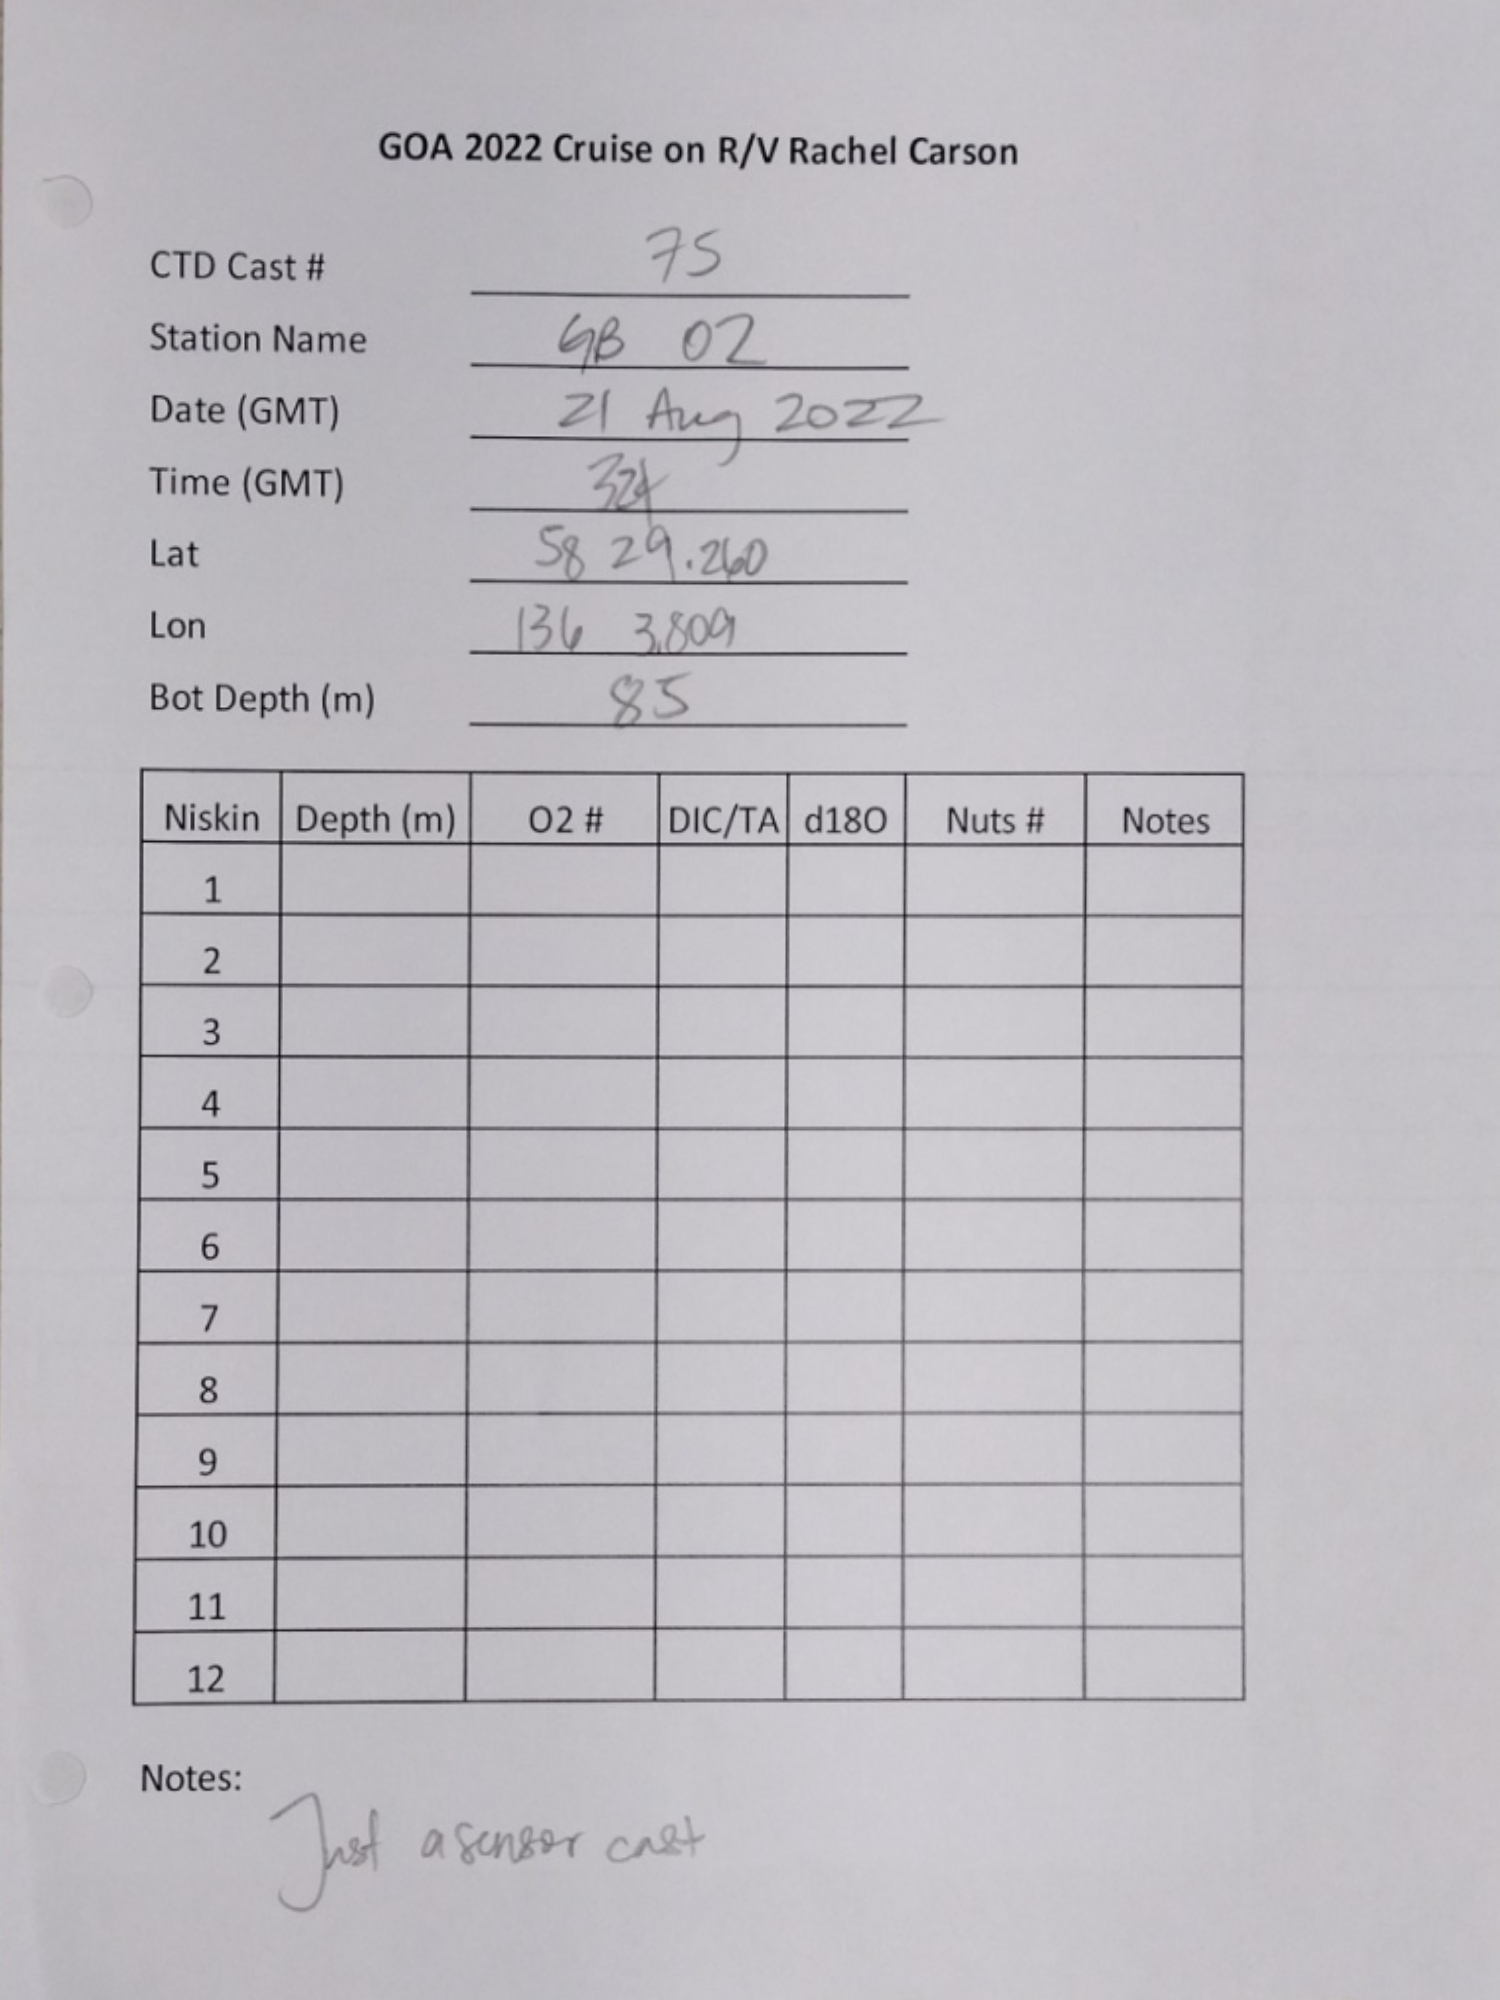 GOA 2022 Cruise on R/V Rachel Carson
CTD Cast # 75
Station Name GB 02
Date (GMT) 21 Aug 2022
Time (GMT) 324
Lat 58 29.260
Lon 136 3.809
Bot Depth (m) 85
Niskin Depth (m) O2 # DIC/TA d18O Nuts # Notes
1
2
3
4
5
6
7
8
9
10
11
12
Notes:
Just a sensor cast